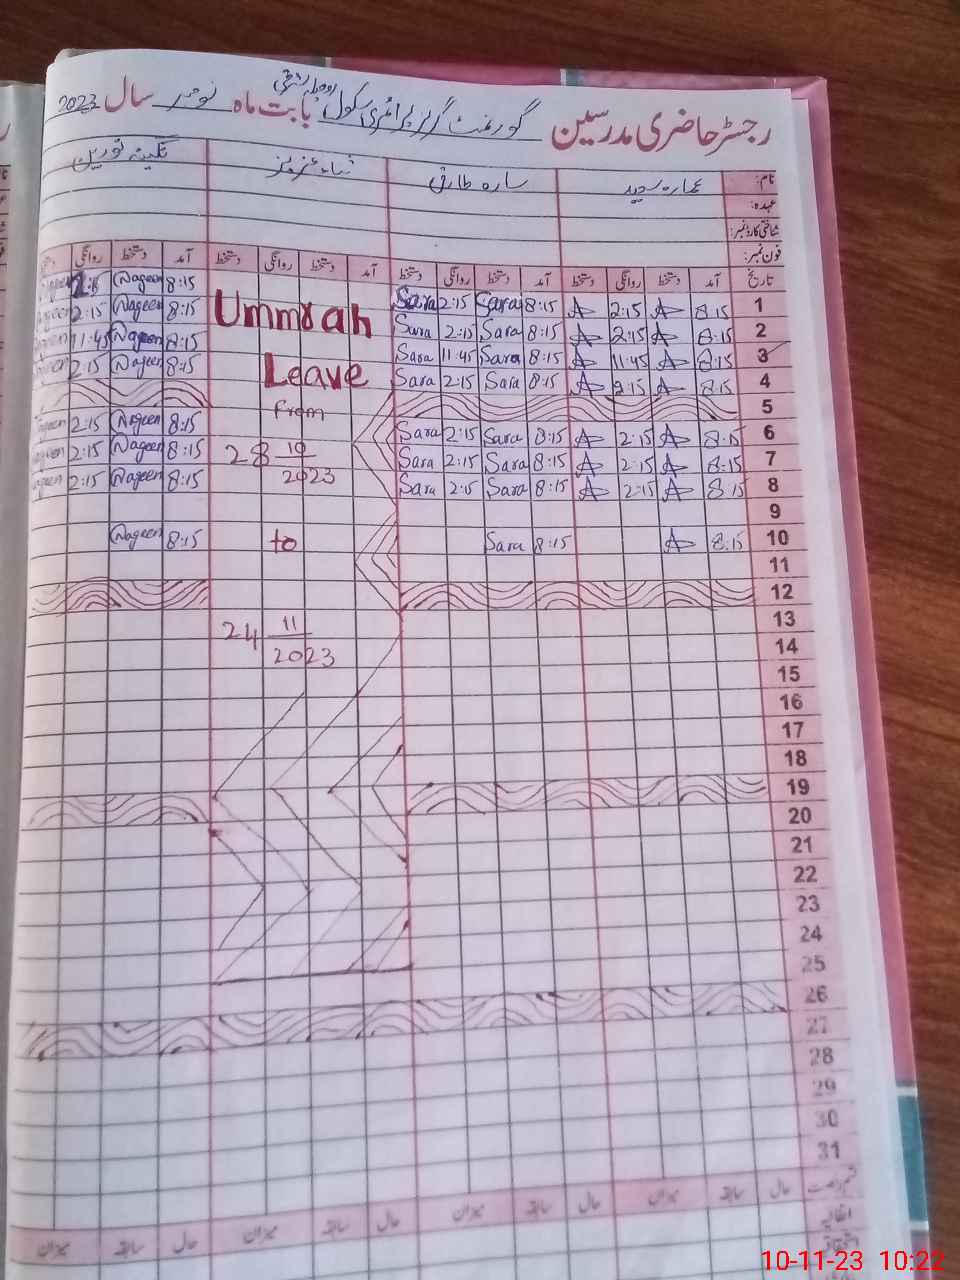 رجسٹر حاضری مدرسین گورنمنٹ گرلز پرائمری سکول بابت ماہ نومبر سال 2023
نام: عمارہ سعید سارہ طارق ثناء عزیز نگینہ نورین
عہدہ:
شناختی کارڈ نمبر:
فون نمبر:
تاریخ آمد دستخط روانگی دستخط آمد دستخط روانگی دستخط آمد دستخط روانگی دستخط آمد دستخط روانگی دستخط
1 8:15 A 2:15 A 8:15 Sara 2:15 Sara Ummrah 8:15 Nageen 2:15
2 8:15 A 2:15 A 8:15 Sara 2:15 Sara 8:15 Nageen 2:15
3 8:15 A 11:45 A 8:15 Sara 11:45 Sara Leave 8:15 Nageen 11:45
4 8:15 A 2:15 A 8:15 Sara 2:15 Sara 8:15 Nageen 2:15
5 From
6 8:15 A 2:15 A 8:15 Sara 2:15 Sara 8:15 Nageen 2:15
7 8:15 A 2:15 A 8:15 Sara 2:15 Sara 28 10 8:15 Nageen 2:15
8 8:15 A 2:15 A 8:15 Sara 2:15 Sara 2023 8:15 Nageen 2:15
9
10 8:15 A 8:15 Sara to 8:15 Nageen
11
12
13 24 11
14 2023
15
16
17
18
19
20
21
22
23
24
25
26
27
28
29
30
31
قسم رخصت حال سابقہ میزان حال سابقہ میزان حال سابقہ میزان حال سابقہ میزان
اتفاقیہ
استحقاقی
10-11-23 10:22